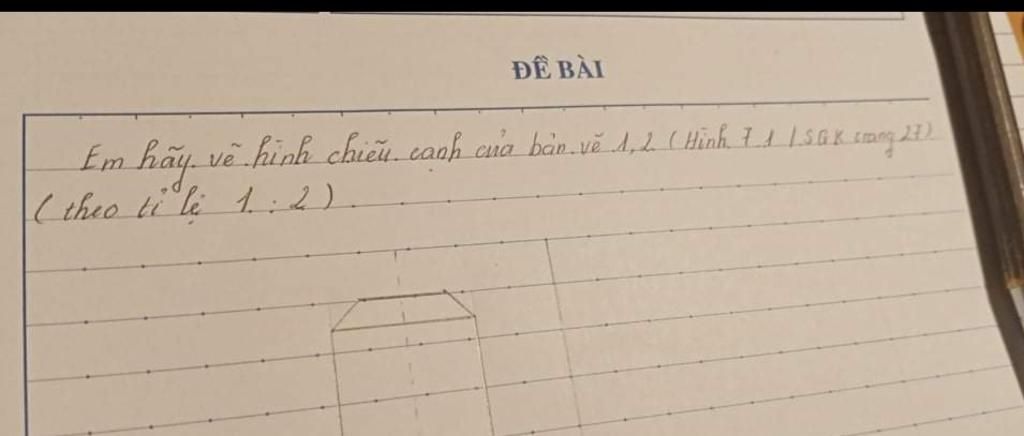 ĐỀ BÀI
Em hãy vẽ hình chiếu cạnh của bản vẽ 1, 2 (Hình 7.1 / SGK trang 27)
(theo tỉ lệ 1 : 2)